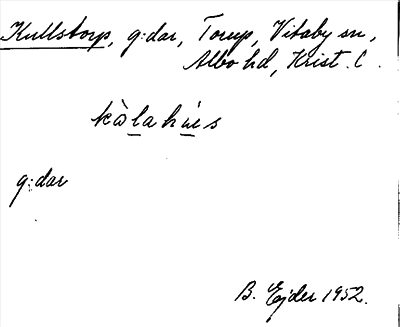 Kullstorp, g:dar, Torup, Vitaby sn,
Albo hd, Krist. l.
kàlahús
g:dar
B. Ejder 1952.